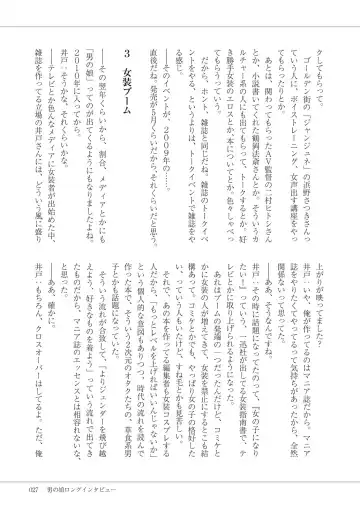 クしてもらって。
　ゴールデン街の「ジャンジュネ」の浜野さつきさんっ
ていう人に、ボイストレーニング、女声出す講座をやっ
てもらったりとか。
　あとは、関わってもらったAV監督の二村ヒトシさん
とか、小説書いてくれた鶴岡法斎さんとか、そういうカ
ルチャー系の人にも出てもらって、トークするとか、好
き勝手女装のエロスとか、本についてとか、色々しゃべっ
てもらうっていう。
　だから、ホント、雑誌と同じだね。雑誌のトークイベ
ントをやる、というよりは、トークイベントで雑誌をや
る感じ。
――そのイベントが、2009年の……。
直後だね。発売が5月くらいだから、それくらいだと思う。
3　女装ブーム
――その翌年くらいから、割合、メディアとかにも
「男の娘」ってのが出てくるようにもなりましたよね。
2010年に入ってから。
井戸―そうかな、それくらいかな。
――テレビとか色んなメディアに女装者が出始めた中、
雑誌を作ってる立場の井戸さんには、どういう風に盛り
上がりが映ってました？
井戸―いや、俺が作ってるのはマニア誌だから。マニア
誌をやりたくてやってるって気持ちがあったから、全然
関係ないって思ってた。
――ああ、そうなんですね。
井戸―その時に話題になってたのって、『女の子になり
たい！』っていう、一迅社が出してる女装指南書で、テ
レビとかに取り上げられるようになった。
　あれはブームの発端の一つだったんだけど、コミケと
かに女装の人が増えてきて、女装を禁止にするところも結
構あって、コミケとかでも、やっぱり女の子の格好した
い、っていう人もいたけど、すね毛とかも見苦しい。
　それで、あの本を作ってる編集者も女装コスプレする
人だから、「もっとレベルを上げればいいんじゃないか」
という個人的な意図もありつつ、時代の流れを読んで
作った本で、そういう2次元のオタクたちの、草食系男
子とかも話題になっていた。
　そういう流れが合致して、「よりジェンダーを飛び越
えよう、好きなものを着よう」っていう流れで出てき
たものだから、マニア誌のエッセンスとは相容れないな、
と思った。
――ああ、確かに。
井戸―もちろん、クロスオーバーはしてるよ。ただ、俺
027　男の娘ロングインタビュー